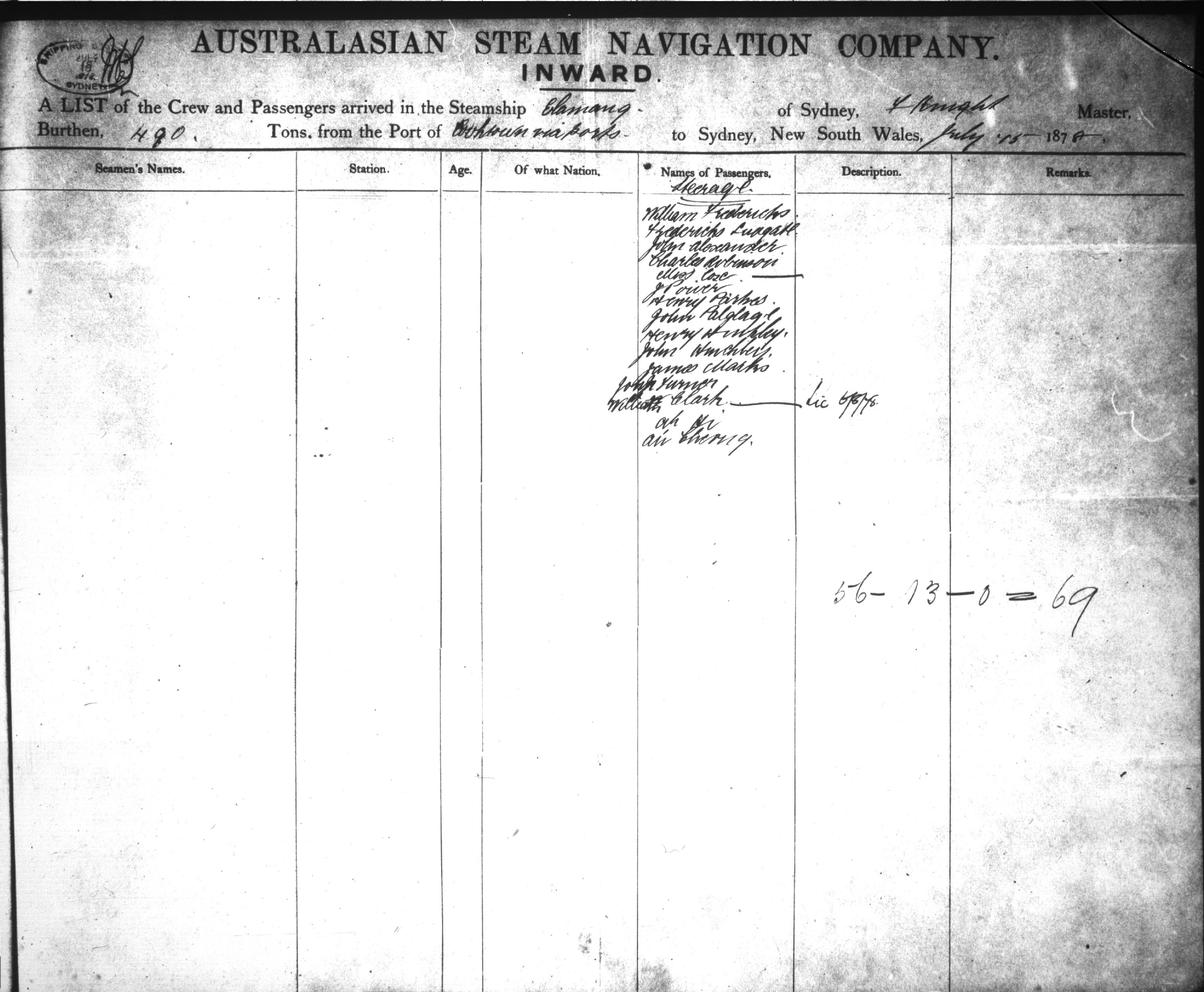 SHIPPING
JULY
SYDNEY
AUSTRALASIAN STEAM NAVIGATION COMPANY.
INWARD.
A LIST of the Crew and Passengers arrived in the Steamship Elamang. of Sydney, F Knight Master,
Burthen, 490. Tons, from the Port of Cooktown via ports to Sydney, New South Wales, July 15 1878.
Seamen's Names. Station. Age. Of what Nation. Names of Passengers, Description. Remarks.
Steerage.
William Frederichs
Frederichs
John Alexander
Charles Robinson
Cox
J Power
Henry Parkes.
John
Henry
John
James Marks
John Turner
William Clark Lic 6/6/78
ah
Chong.
56 - 13 - 0 = 69